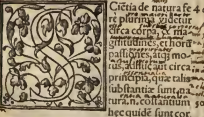 S Ciẽtia de natura fe
re plurima videtur
circa corpa, & ma
gnitudines, et horũ
passiones, atq; mo
tus, adhuc aũt circa
principia, quæ talis
substantiæ sunt, na
tura. n. constantium
hæc quidē sunt cor